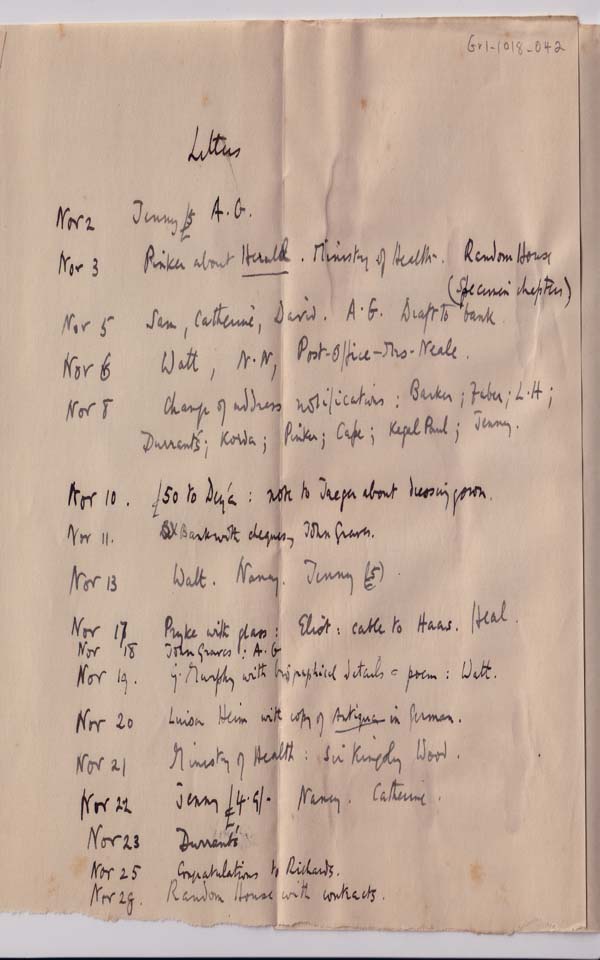 Gr1-1018-042
Letters
Nov 2 Jenny £5 A.G.
Nov 3 Pinker about Herald. Ministry of Health. Random House
(Specimen chapters)
Nov 5 Sam, Catherine, David. A.G. Draft to bank
Nov 6 Watt, N.N, Post-Office-Mrs-Neale.
Nov 8 Change of address notifications: Barker; Faber; L.H;
Durrants; Korda; Pinker; Cape; Kegel Paul; Jenny.
Nov 10. £50 to Deyá: note to Jaeger about dressing gown.
Nov 11. Bank with cheques, John Graves.
Nov 13 Watt. Nancy. Jenny (£5).
Nov 17 Pryke with glass: Eliot: cable to Haas. Heal.
Nov 18 John Graves: A.G
Nov 19. G. Murphy with biographical details = poem: Watt.
Nov 20 Luisa Heim with copy of Antigua in German.
Nov 21 Ministry of Health: Sir Kingsley Wood.
Nov 22 Jenny £4.9/- Nancy. Catherine.
Nov 23 Durrants
Nov 25 Congratulations to Richards.
Nov 28. Random House with contracts.